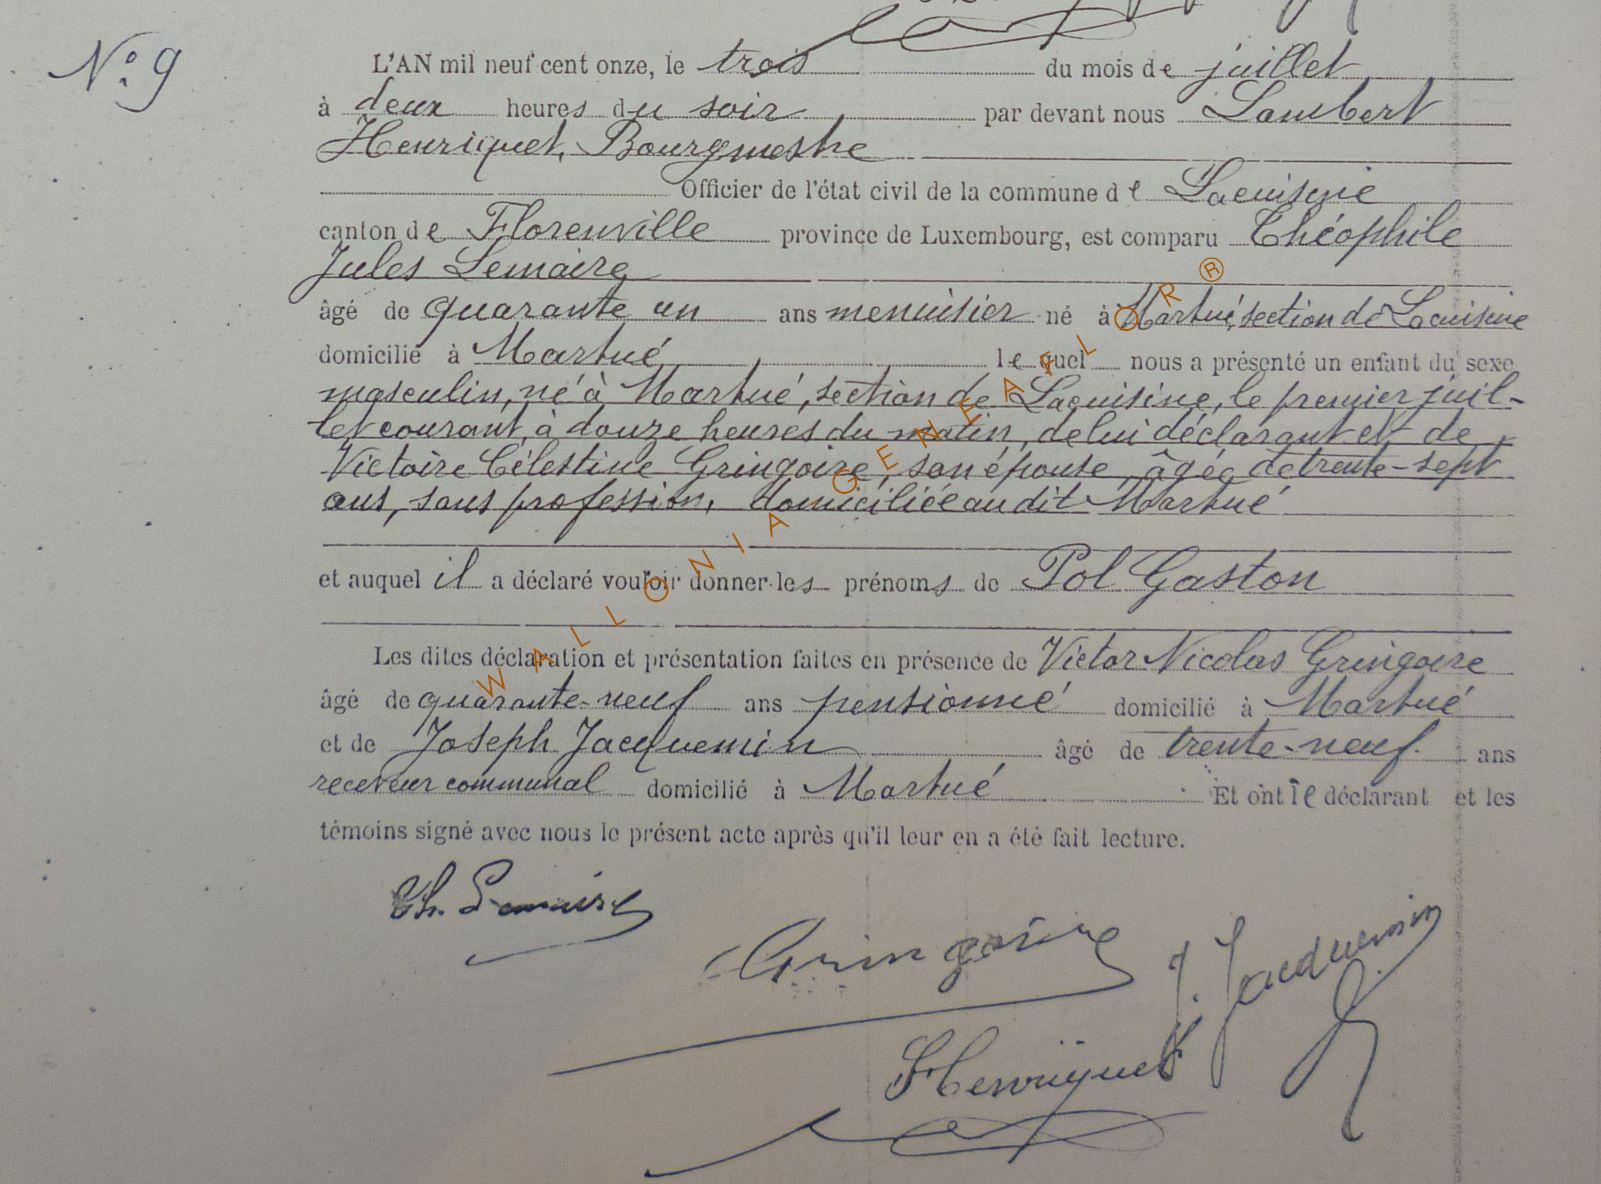 N° 9
L'AN mil neuf cent onze, le trois du mois de juillet
à deux heures du soir par devant nous Lambert
Henriquet, Bourgmestre
Officier de l'état civil de la commune de Lacuisine
canton de Florenville province de Luxembourg, est comparu Théophile
Jules Lemaire
âgé de quarante un ans menuisier né à Martué, section de Lacuisine
domicilié à Martué, lequel nous a présenté un enfant du sexe
masculin, né à Martué, section de Lacuisine, le premier juil-
let courant, à douze heures du matin, de lui déclarant et de
Victoire Célestine Gringoire, son épouse, âgée de trente-sept
ans, sans profession, domiciliée au dit Martué
et auquel il a déclaré vouloir donner les prénoms de Pol Gaston
Les dites déclaration et présentation faites en présence de Victor Nicolas Gringoire
âgé de quarante-neuf ans pensionné domicilié à Martué
et de Joseph Jacquemin âgé de trente-neuf ans
receveur communal domicilié à Martué Et ont le déclarant et les
témoins signé avec nous le présent acte après qu'il leur en a été fait lecture.
Th. Lemaire
Gringoire
J. Jacquemin
Henriquet
WALLONIA GENEAFLOR®